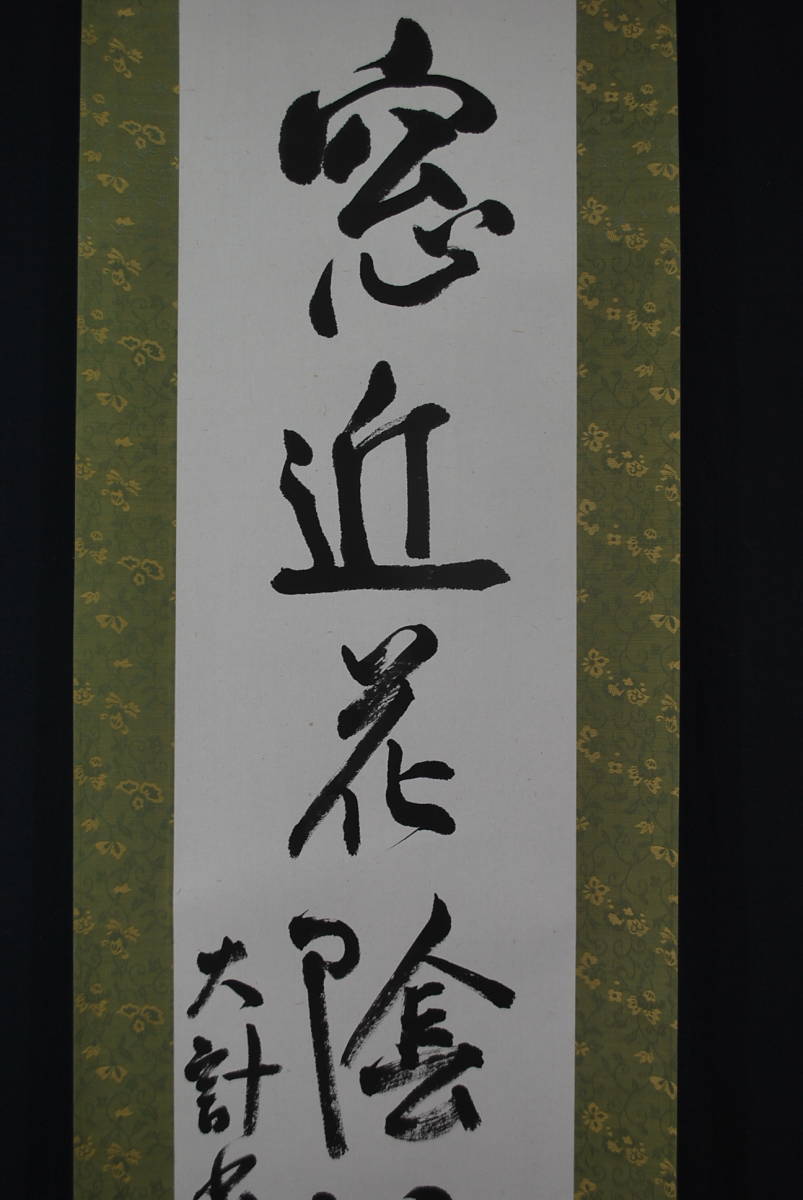 窓近花陰
大計